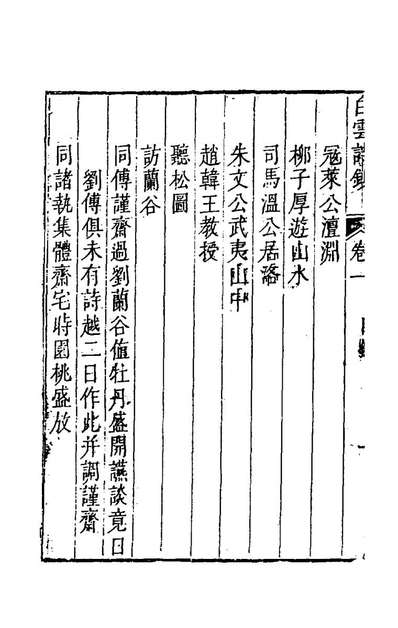 白雲詩鈔 卷一
寇萊公澶淵
柳子厚遊山水
司馬溫公居洛
朱文公武夷山中
趙韓王教授
聽松圖
訪蘭谷
同傅謹齋過劉蘭谷值牡丹盛開讌談竟日
劉傅俱未有詩越二日作此并調謹齋
同諸執集體齋宅時園桃盛放